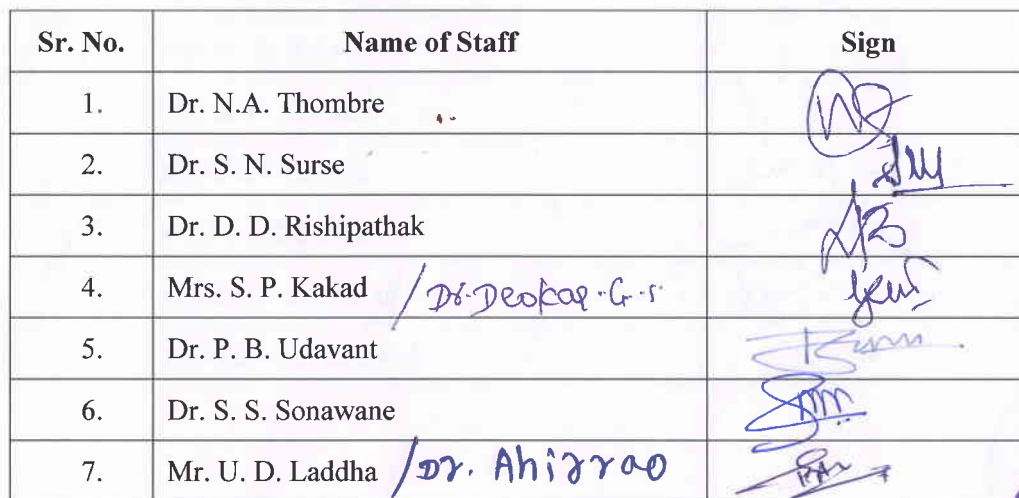 Sr. No. Name of Staff Sign
1. Dr. N.A. Thombre
2. Dr. S. N. Surse
3. Dr. D. D. Rishipathak
4. Mrs. S. P. Kakad / Dr. Deokar. G. S.
5. Dr. P. B. Udavant
6. Dr. S. S. Sonawane
7. Mr. U. D. Laddha / Dr. Ahirrao